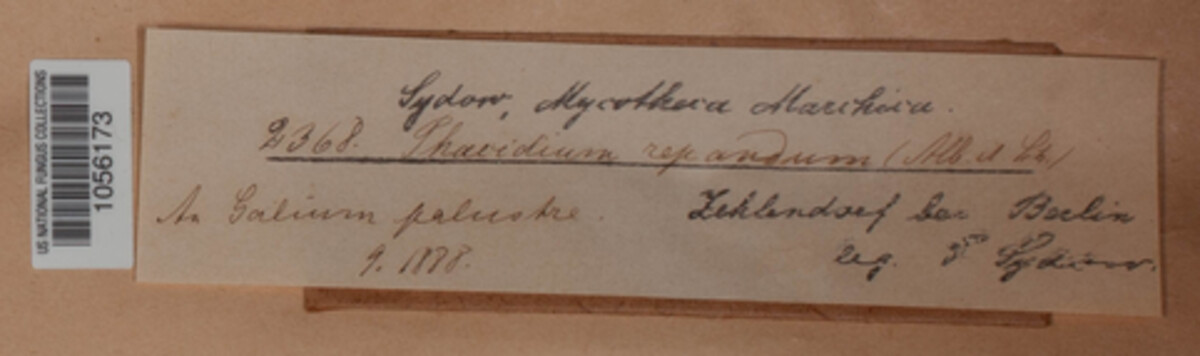 US NATIONAL FUNGUS COLLECTIONS
1056173
Sydow, Mycotheca Marchica.
2368. Phacidium repandum (Alb. et Sch.)
An Galium palustre. Zehlendorf bei Berlin
9. 1888. leg. Sydow.